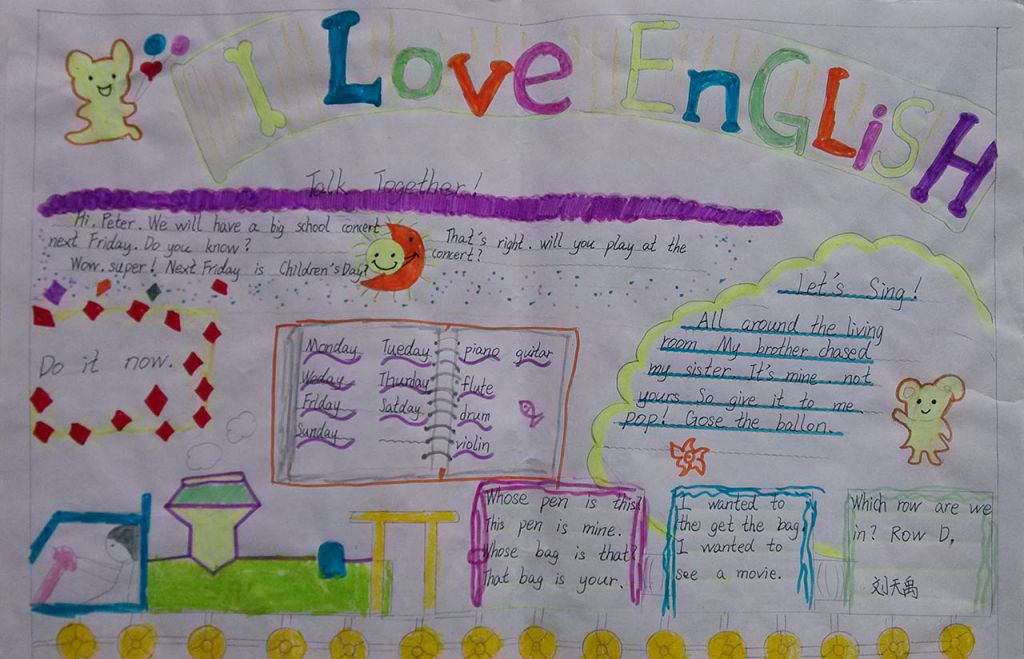 I Love EnGLiSH
Talk Together!
Hi, Peter. We will have a big school concert
next Friday. Do you know?
Wow. super! Next Friday is Children's Day?
That's right. will you play at the
concert?
Do it now.
Monday Tueday
Weday Thurday
Friday Satday
Sunday
piano guitar
flute
drum
violin
Let's Sing!
All around the living
room My brother chased
my sister It's mine not
yours So give it to me
pop! Gose the ballon.
Whose pen is this?
This pen is mine.
Whose bag is that?
That bag is your.
I wanted to
the get the bag
I wanted to
see a movie.
Which row are we
in? Row D,
刘天禹